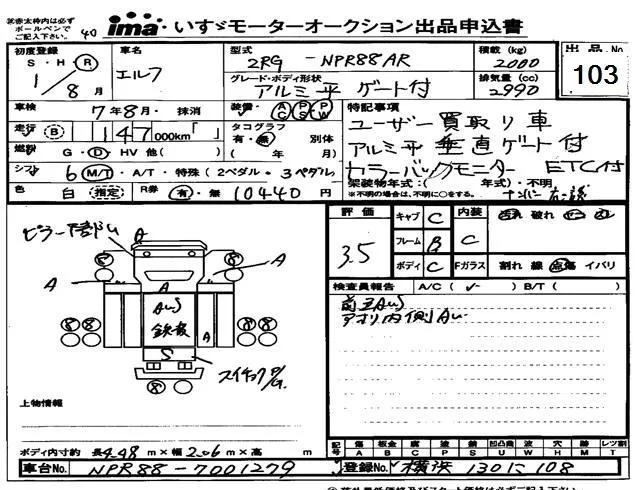 ※赤太枠内は必ず
ボールペンで
ご記入下さい。
40
ima・いすゞモーターオークション出品申込書
初度登録
S・H・R
1/8月
車名
エルフ
型式
2RG-NPR88AR
積載(kg)
2000
グレード・ボディ形状
アルミ平 ゲート付
排気量(cc)
2990
出品No.
103
車検
7年8月・抹消
装備
AC PS PW
特記事項
ユーザー買取り車
アルミ平垂直ゲート付
カラーバックモニター ETC付
走行 B
147,000km「 」
タコグラフ
有・無 別体
( 年 月)
燃料
G・D・HV 他( )
シフト
6 M/T・A/T・特殊(2ペダル・3ペダル)
架装物年式:( 年式)・不明
※不明の場合は、不明に○をする。
色
白 指定
R券
有・無 10440円
評価
3.5
キャブ C
内装 C
汚れ 破れ
フレーム B
ボディ C
Fガラス
割れ 線 点傷 イバリ
検査員報告
A/C( ✓ ) B/T( )
アオリ内側AW
ピラー下部U
A
A
A
A
A
AUS
鉄板
S
8
8
8
8
8
8
8
8
スイチョクP/G.
上物情報
ボディ内寸約 長4.48m×幅2.06m×高 m
記号
傷 A
板金 B
腐 C
塗 P
錆 S
凹凸 U
波 W
穴 H
補 M
レツ割 T
車台No.
NPR88-7001279
登録No.
横浜130に108